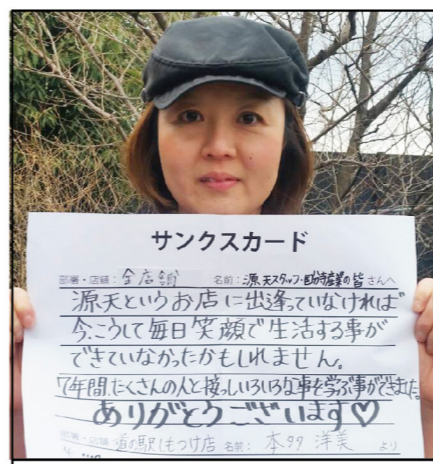 サンクスカード
部署・店舗 全店舗 名前: 源天スタッフ・国分寺産業の皆さんへ
源天というお店に出逢っていなければ
今、こうして毎日笑顔で生活する事が
できていなかったかもしれません。
7年間、たくさんの人と接しいろいろな事を学ぶ事ができました。
ありがとうございます♡
部署・店舗 道の駅しもつけ店 名前: 本多 洋美 より